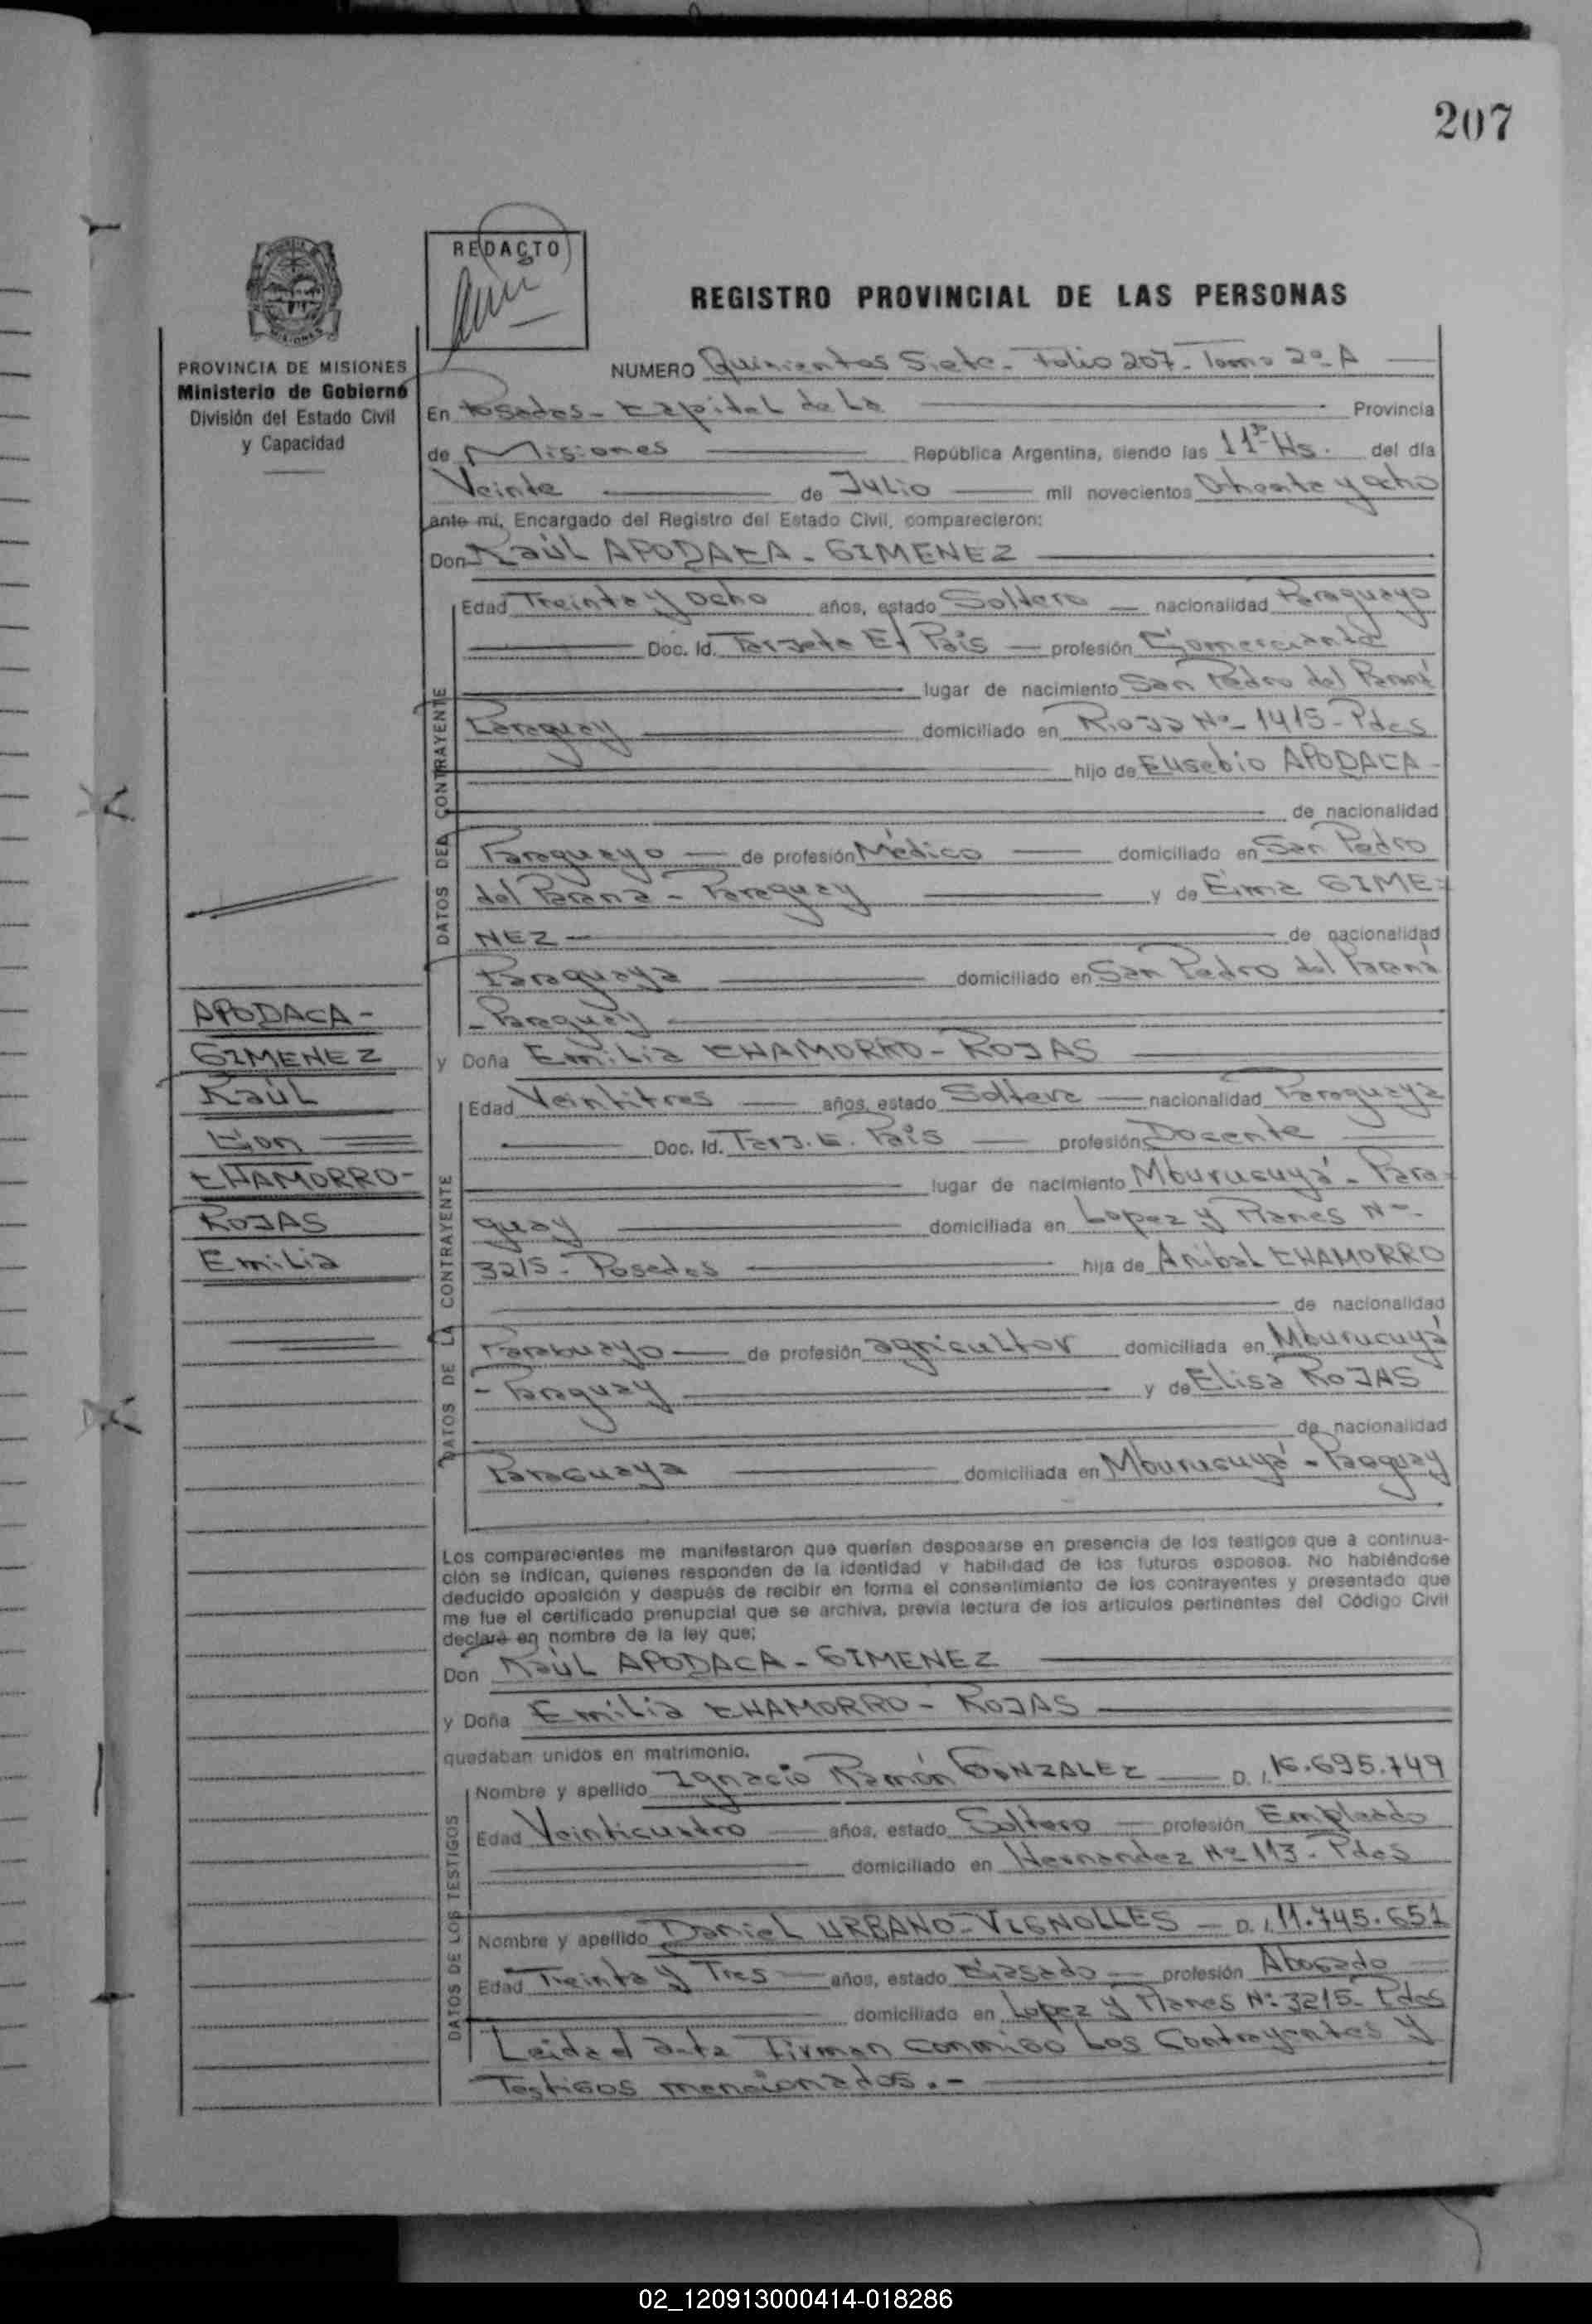 207
REDACTO
REGISTRO PROVINCIAL DE LAS PERSONAS
PROVINCIA DE MISIONES
Ministerio de Gobierno
División del Estado Civil
y Capacidad
NUMERO Quinientos Siete - Folio 207 - Tomo 2º A
En Posadas - Capital de La Provincia
de Misiones República Argentina, siendo las 11 Hs. del día
Veinte de Julio mil novecientos Ochenta y ocho
ante mí, Encargado del Registro del Estado Civil, comparecieron:
Don Raúl APODACA - GIMENEZ
DATOS DEL CONTRAYENTE
Edad Treinta y Ocho años, estado Soltero nacionalidad Paraguayo
Doc. Id. Tarjeta Ej Pais profesión Comerciante
lugar de nacimiento San Pedro del Paraná
Paraguay domiciliado en Rioja Nº 1415 - Pdas
hijo de Eusebio APODACA -
de nacionalidad
Paraguayo de profesión Médico domiciliado en San Pedro
del Paraná - Paraguay y de GIME=
NEZ - de nacionalidad
Paraguaya domiciliado en San Pedro del Paraná
- Paraguay
APODACA -
GIMENEZ
Raúl
Con
CHAMORRO -
ROJAS
Emilia
y Doña Emilia CHAMORRO - ROJAS
DATOS DE LA CONTRAYENTE
Edad Veintitres años, estado Soltera nacionalidad Paraguaya
Doc. Id. Tarj. E. Pais profesión Docente
lugar de nacimiento Mburucuyá - Para=
guay domiciliada en Lopez y Planes Nº
3215 - Posadas hija de Anibal CHAMORRO
de nacionalidad
Paraguayo de profesión agricultor domiciliada en Mburucuyá
- Paraguay y de Elisa ROJAS
de nacionalidad
Paraguaya domiciliada en Mburucuyá - Paraguay
Los comparecientes me manifestaron que querían desposarse en presencia de los testigos que a continua-
ción se indican, quienes responden de la identidad y habilidad de los futuros esposos. No habiéndose
deducido oposición y después de recibir en forma el consentimiento de los contrayentes y presentado que
me fue el certificado prenupcial que se archiva, previa lectura de los artículos pertinentes del Código Civil
declaré en nombre de la ley que:
Don Raúl APODACA - GIMENEZ
y Doña Emilia CHAMORRO - ROJAS
quedaban unidos en matrimonio.
DATOS DE LOS TESTIGOS
Nombre y apellido Ignacio Ramón GONZALEZ D. I. 16.695.749
Edad Veinticuatro años, estado Soltero profesión Empleado
domiciliado en Hernandez Nº 113 - Pdas
Nombre y apellido Daniel URBANO - VIGNOLLES D. I. 11.745.651
Edad Treinta y Tres años, estado Casado profesión Abogado
domiciliado en Lopez y Planes Nº 3215 - Pdas
Leida el acta Firman conmigo Los Contrayentes y
Testigos mencionados. -
02_120913000414-018286